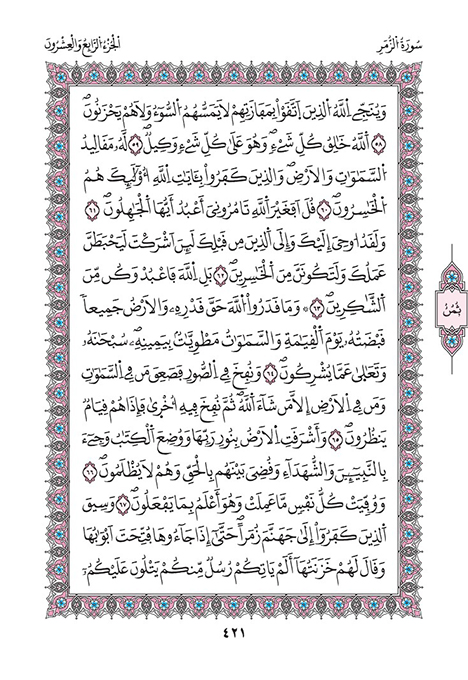 سُورَةُ الزُّمَرِ
الجُزْءُ الرَّابِعُ وَالْعِشْرُونَ
وَيُنَجِّے اِ۬للَّهُ اُ۬لذِينَ اَ۪تَّقَوْاْ بِمَفَازَتِهِمْ لَا يَمَسُّهُمُ اُ۬لسُّوٓءُ وَلَا هُمْ يَحْزَنُونَۖ
٥٨ اَ۬للَّهُ خَٰلِقُ كُلِّ شَےْءٖۖ وَهُوَ عَلَيٰ كُلِّ شَےْءٖ وَكِيلٞۖ ٥٩ لَّهُۥ مَقَالِيدُ
اُ۬لسَّمَٰوَٰتِ وَالَارْضِۖ وَالذِينَ كَفَرُواْ بِـَٔايَٰتِ اِ۬للَّهِ أُوْلَٰٓئِكَ هُمُ
اُ۬لْخَٰسِرُونَۖ ٦٠ قُلَ اَفَغَيْرَ اَ۬للَّهِ تَامُرُونِيَ أَعْبُدُ أَيُّهَا اَ۬لْجَٰهِلُونَۖ ٦١
وَلَقَدُ ا۟وحِيَ إِلَيْكَ وَإِلَي اَ۬لذِينَ مِن قَبْلِكَ لَئِنَ اَشْرَكْتَ لَيَحْبَطَنَّ
عَمَلُكَ وَلَتَكُونَنَّ مِنَ اَ۬لْخَٰسِرِينَۖ ٦٢ بَلِ اِ۬للَّهَ فَاعْبُدْ وَكُن مِّنَ
اَ۬لشَّٰكِرِينَۖ ٦٣ ۞ وَمَا قَدَرُواْ اُ۬للَّهَ حَقَّ قَدْرِهِۦ وَالَارْضُ جَمِيعاٗ
قَبْضَتُهُۥ يَوْمَ اَ۬لْقِيَٰمَةِ وَالسَّمَٰوَٰتُ مَطْوِيَّٰتُۢ بِيَمِينِهِۦۖ سُبْحَٰنَهُۥ
وَتَعَٰلَيٰ عَمَّا يُشْرِكُونَۖ ٦٤ وَنُفِخَ فِے اِ۬لصُّورِ فَصَعِقَ مَن فِے اِ۬لسَّمَٰوَٰتِ
وَمَن فِے اِ۬لَارْضِ إِلَّا مَن شَآءَ اَ۬للَّهُۖ ثُمَّ نُفِخَ فِيهِ أُخْر۪يٰ فَإِذَا هُمْ قِيَامٞ
يَنظُرُونَۖ ٦٥ وَأَشْرَقَتِ اِ۬لَارْضُ بِنُورِ رَبِّهَا وَوُضِعَ اَ۬لْكِتَٰبُ وَجِےٓءَ
بِالنَّبِيٓـِٕينَ وَالشُّهَدَآءِ وَقُضِيَ بَيْنَهُم بِالْحَقِّ وَهُمْ لَا يُظْلَمُونَۖ ٦٦
وَوُفِّيَتْ كُلُّ نَفْسٖ مَّا عَمِلَتْ وَهُوَ أَعْلَمُ بِمَا يَفْعَلُونَۖ ٦٧ وَسِيقَ
اَ۬لذِينَ كَفَرُوٓاْ إِلَيٰ جَهَنَّمَ زُمَراًۖ حَتَّيٰٓ إِذَا جَآءُوهَا فُتِّحَتَ اَبْوَٰبُهَا
وَقَالَ لَهُمْ خَزَنَتُهَآ أَلَمْ يَاتِكُمْ رُسُلٞ مِّنكُمْ يَتْلُونَ عَلَيْكُمُۥٓ
ثُمُنُ
٤٢١